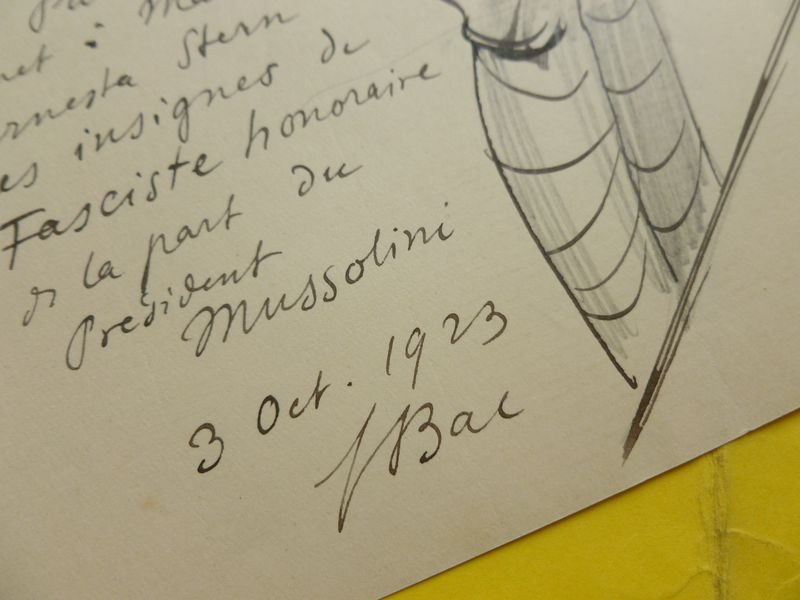 net : Ma
rnesta Stern
es insignes de
Fasciste honoraire
de la part du
Président
Mussolini
3 Oct. 1923
Bac